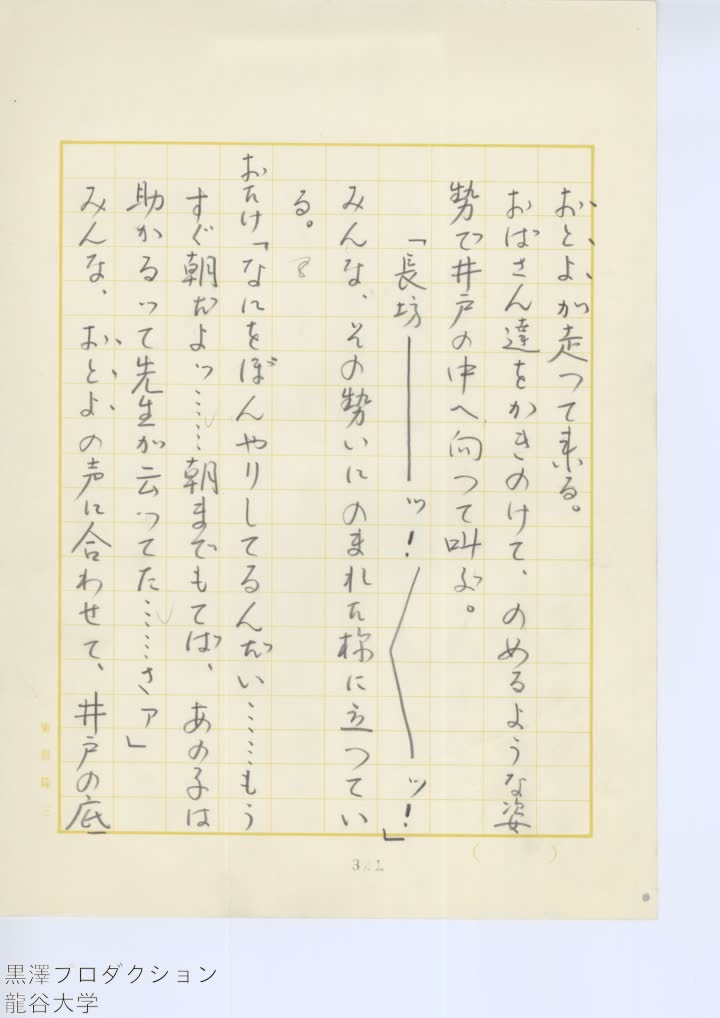 おとよが走って来る。
おばさん達をかきのけて、のめるような姿
勢で井戸の中へ向って叫ぶ。
「長坊――ッ!〈ッ!」
みんな、その勢いにのまれた様に立ってい
る。
おたけ「なにをぼんやりしてるんだい……もう
すぐ朝だよッ……朝までもてば、あの子は
助かるって先生が云ってた……さァ」
みんな、おとよの声に合わせて、井戸の底
321
黒澤プロダクション
龍谷大学